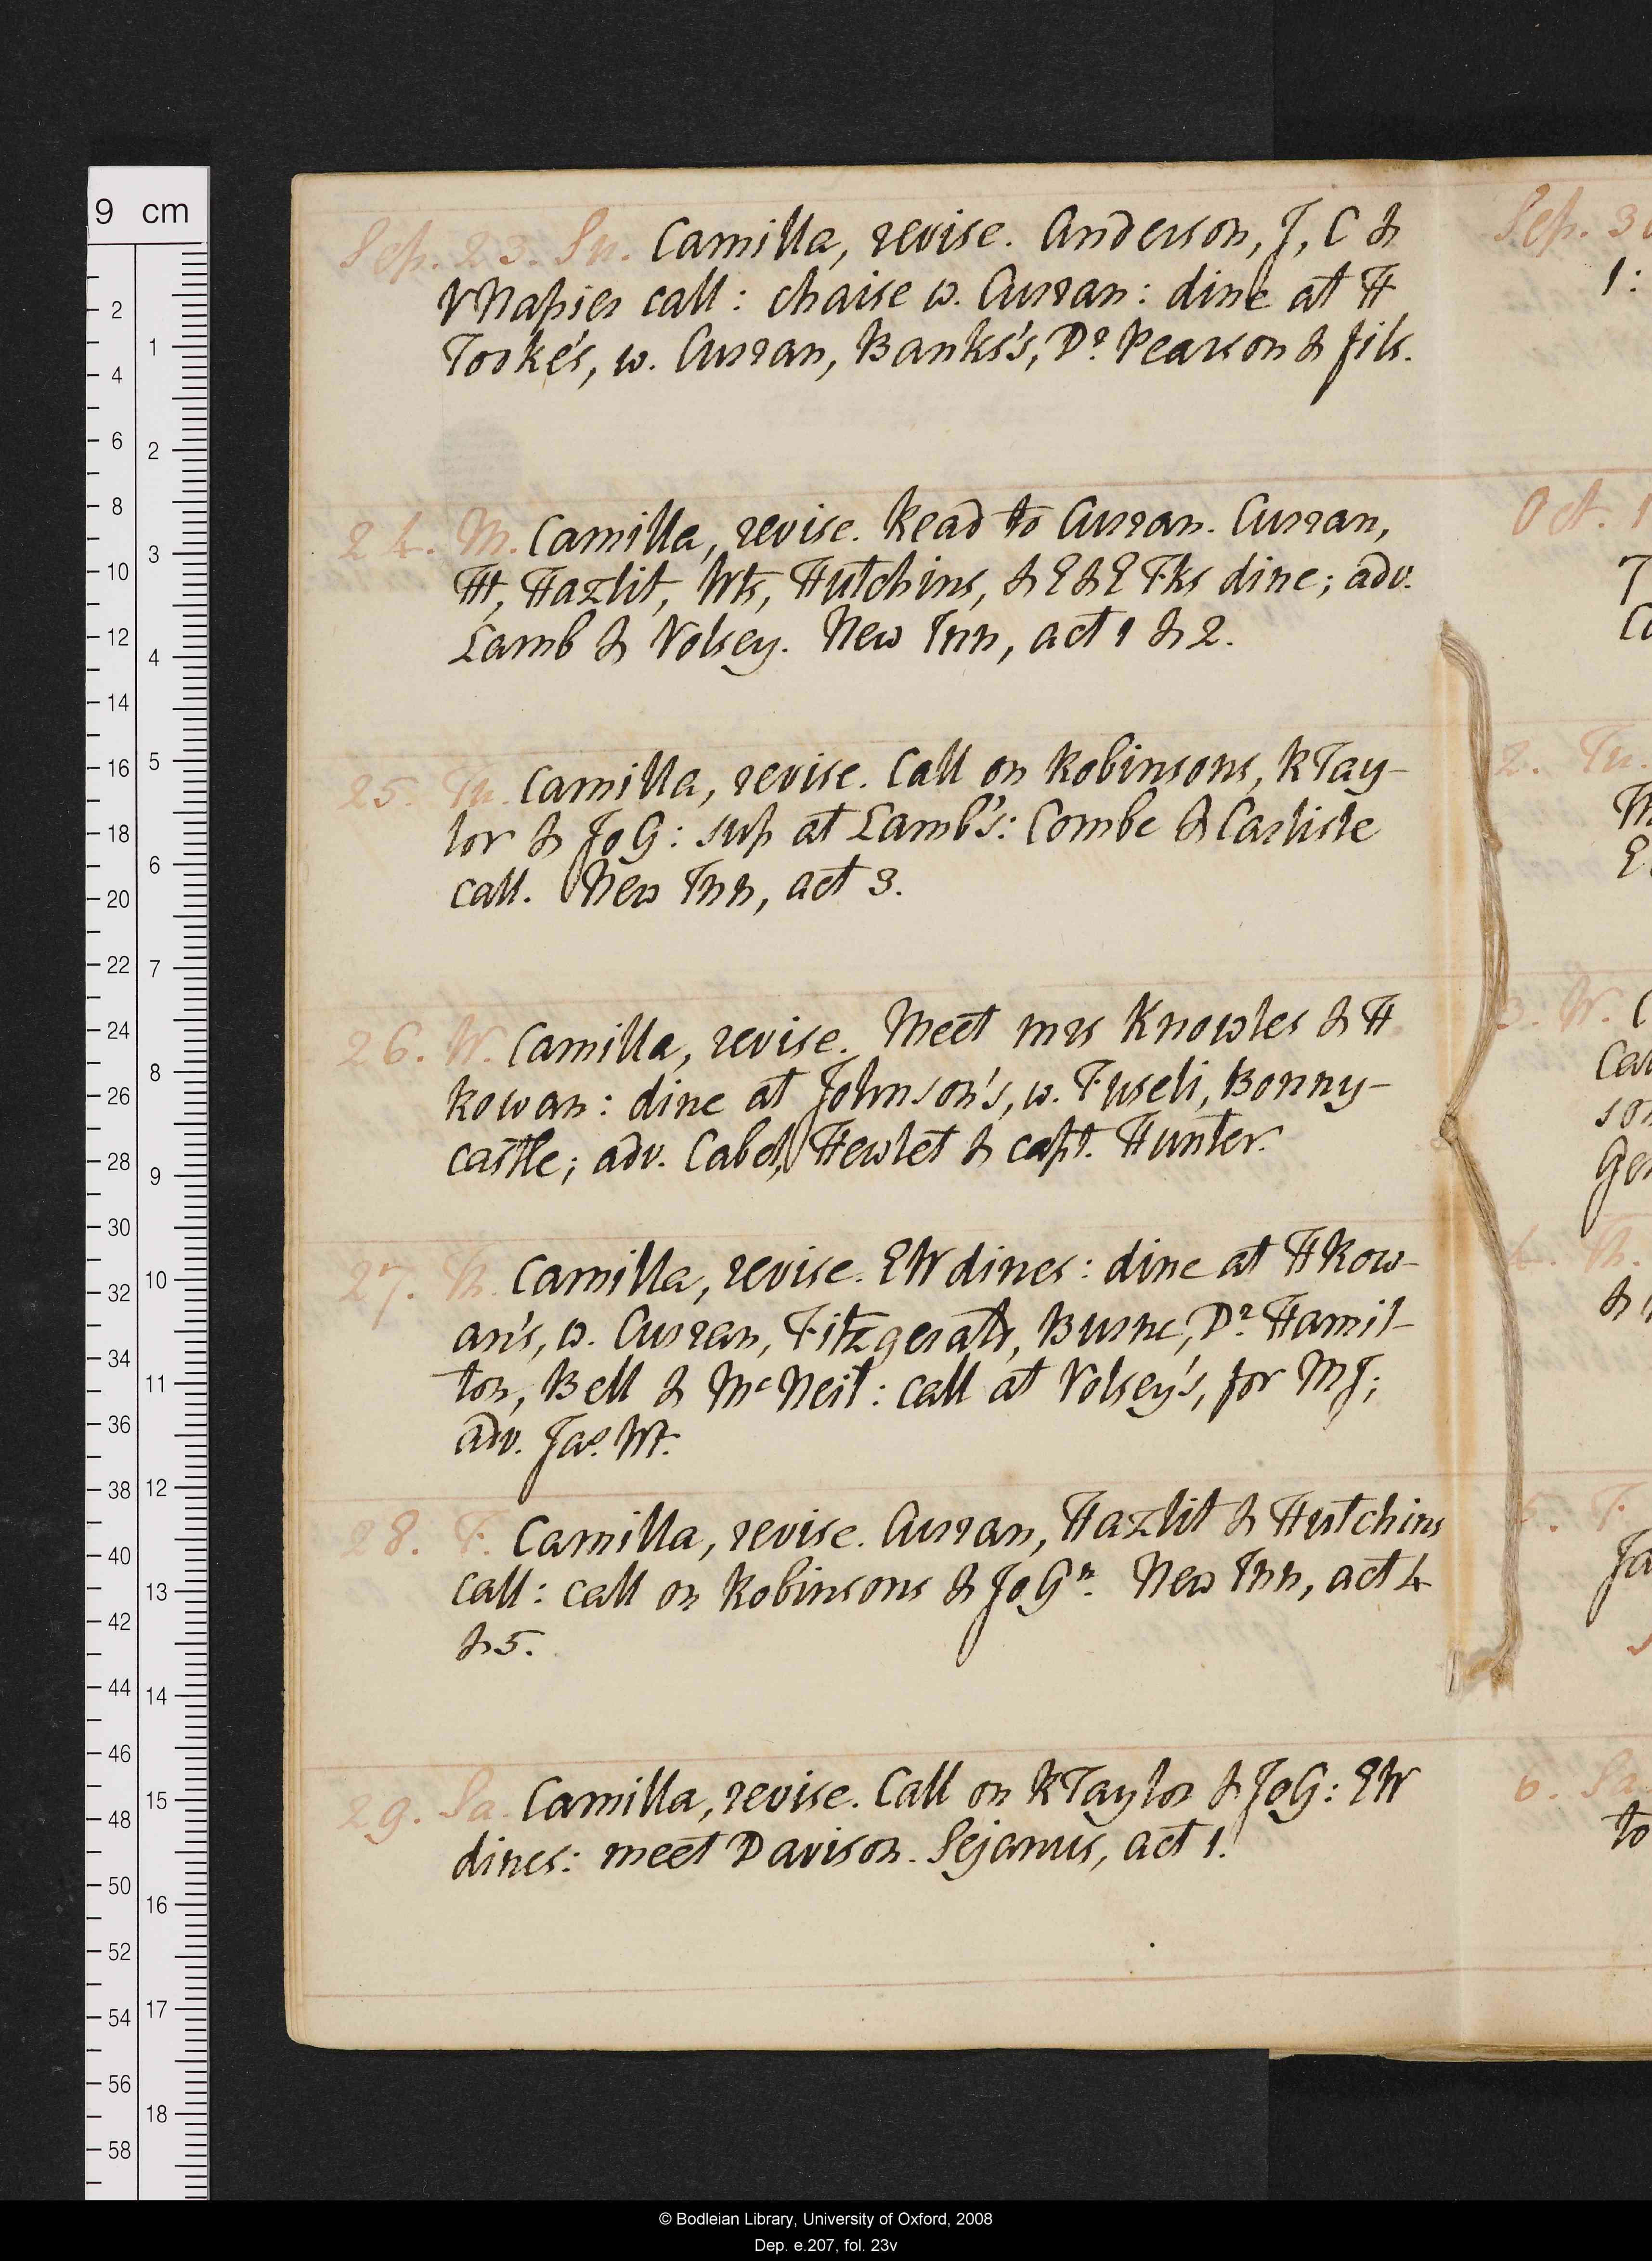 9 cm
Sep. 23. Su. Camilla, revise. Anderson, J, C &
V Napier call: chaise w. Curran: dine at H
Tooke's, w. Curran, Banks's, Dr. Pearson & fils.
24. M. Camilla, revise. Read to Curran. Curran,
Ht, Hazlit, Wts, Hutchins, & E & E Fks dine; adv.
Lamb & Volsey. New Inn, act 1 & 2.
25. Tu. Camilla, revise. Call on Robinsons, R Tay-
lor & Jo G: sup at Lamb's: Combe & Carlisle
call. New Inn, act 3.
26. W. Camilla, revise. Meet mrs Knowles & H
Rowan: dine at Johnson's, w. Fuseli, Bonny-
castle; adv. Cabel, Hewlet & capt. Hunter.
27. Th. Camilla, revise. EW dines: dine at H Row-
an's, w. Curran, Fitzgerald, Burne, Dr. Hamil-
ton, Bell & McNeil: call at Volsey's, for MJ;
adv. Jas. Wt.
28. F. Camilla, revise. Curran, Hazlit & Hutchins
call: call on Robinsons & Jo Gn. New Inn, act 4
& 5.
29. Sa. Camilla, revise. Call on R Taylor & Jo G: EW
dines: meet Davison. Sejanus, act 1.
Sep. 30
1:
Oct. 1
2. Tu.
3. W.
4. Th.
5. F.
6. Sa.
to
© Bodleian Library, University of Oxford, 2008
Dep. e.207, fol. 23v